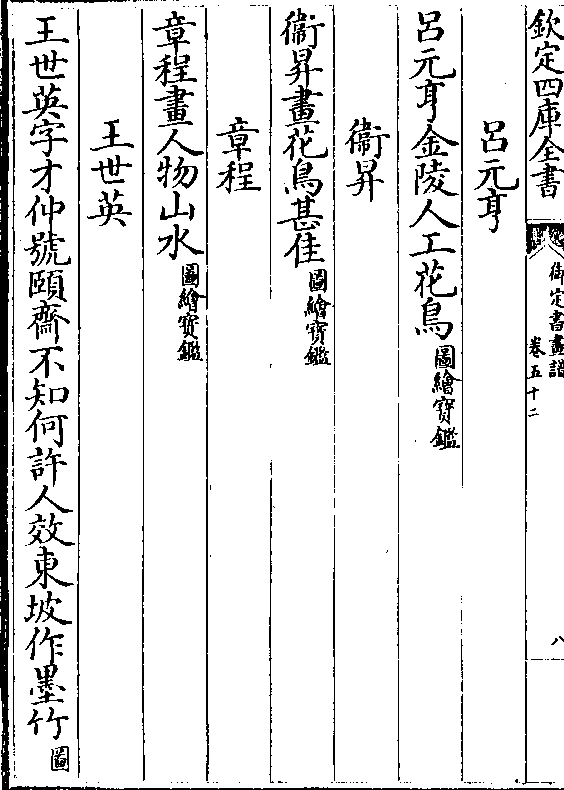 欽定四庫全書
御定書畫譜
卷五十二
八
呂元亨
呂元亨金陵人工花鳥圖繪寶鑑
衞昇
衞昇畫花鳥甚佳圖繪寶鑑
章程
章程畫人物山水圖繪寶鑑
王世英
王世英字才仲號頤齋不知何許人效東坡作墨竹圖